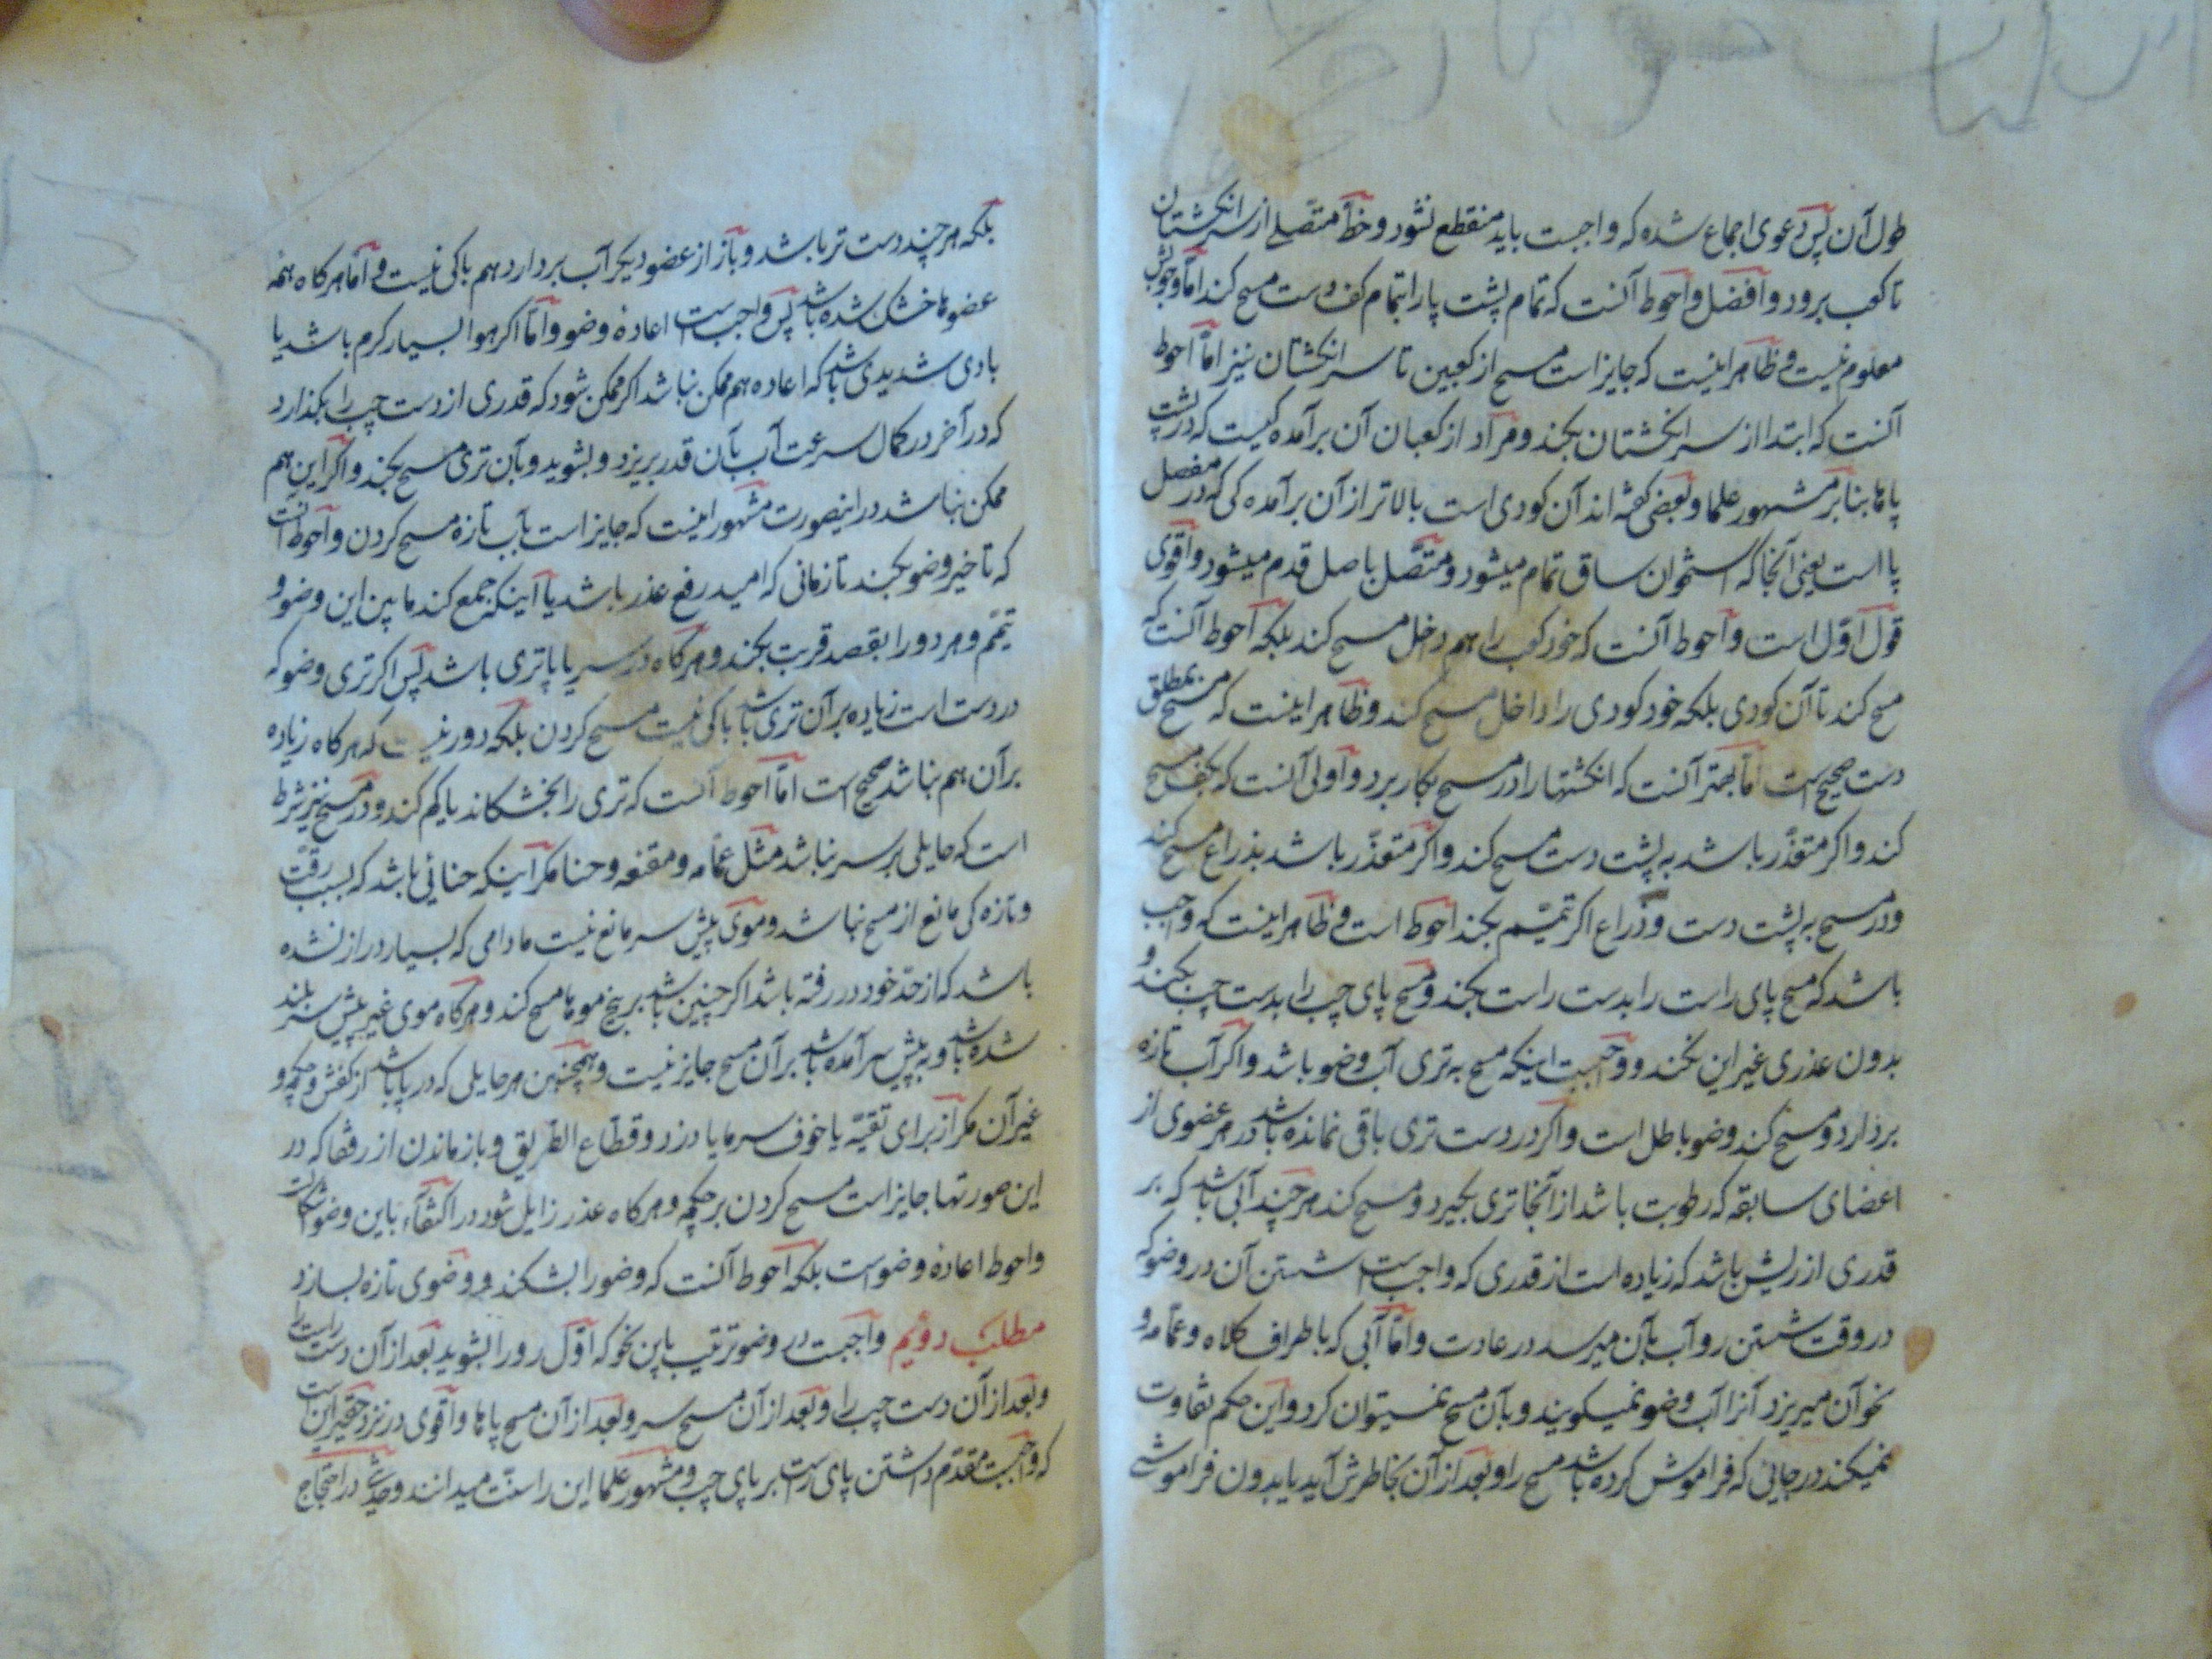 طول آن پس دعوی اجماع شده که واجبست باید منقطع نشود و خط متصلی از سر انکشتان
تا کعب برود و افضل و احوط آنست که تمام پشت پا را بتمام کف دست مسح کند اما وجوبش
معلوم نیست و ظاهر اینست که جایز است مسح از کعبین تا سر انکشتان نیز اما احوط
آنست که ابتدا از سر انکشتان بکند و مراد از کعبان آن برآمده کیست که در پشت
پاها بنا بر مشهور علما و بعضی کفته اند آن کودی است بالاتر از آن برآمده کی که در مفصل
پا است یعنی آنجا که استخوان ساق تمام میشود و متصل باصل قدم میشود و اقوی
قول اول است و احوط آنست که خود کعب را هم داخل مسح کند بلکه احوط آنست که
مسح کند تا آن کودی بلکه خود کودی را داخل مسح کند و ظاهر اینست که مسح بمطلق
دست صحیح است اما بهتر آنست که انکشتها را در مسح بکار برد و اولی آنست که بکف مسح
کند و اکر متعذر باشد به پشت دست مسح کند و اکر متعذر باشد بذراع مسح کند
و در مسح به پشت دست و ذراع اکر تیمم بکند احوط است و ظاهر اینست که واجب
باشد که مسح پای راست را بدست راست بکند و مسح پای چپ را بدست چپ بکند و
بدون عذری غیر این نکند و واجبست اینکه مسح به تری آب وضو باشد و اکر آب تازه
بردارد و مسح کند وضو باطل است و اکر در دست تری باقی نمانده باشد در هر عضوی از
اعضای سابقه که رطوبت باشد از آنجا تری بکیرد و مسح کند هر چند آبی باشد که بر
قدری از ریش باشد که زیاده است از قدری که واجب است شستن آن در وضو که
در وقت شستن رو آب بآن میرسد در عادت و اما آبی که باطراف کلاه و عمامه و
نحو آن میریزد آنرا آب وضو نمیکویند و بآن مسح نمیتوان کرد و این حکم تفاوت
نمیکند در جائی که فراموش کرده باشد مسح را و بعد از آن بخاطرش آید یا بدون فراموشی
بلکه هر چند دست تر باشد و باز از عضو دیکر آب بردارد هم باکی نیست و اما هرکاه همه
عضوها خشک شده باشد پس واجب است اعادهٔ وضو و اما اکر هوا بسیار کرم باشد یا
بادی شدیدی باشد که اعاده هم ممکن نباشد اکر ممکن شود که قدری از دست چپ را بکذارد
که در آخر در کمال سرعت آب بآن قدر بریزد و بشوید و بآن تری مسح بکند و اکر این هم
ممکن نباشد در اینصورت مشهور اینست که جایز است بآب تازه مسح کردن و احوط آنست
که تاخیر وضو بکند تا زمانی که امید رفع عذر باشد یا آنیکه جمع کند مابین این وضو و
تیمم و هر دو را بقصد قربت بکند و هرکاه در سر یا پا تری باشد پس اکر تری وضو که
در دست است زیاده بر آن تری باشد باکی نیست مسح کردن بلکه دور نیست که هرکاه زیاده
بر آن هم نباشد صحیح است اما احوط آنست که تری را بخشکاند یا کم کند و در مسح نیز شرط
است که حایلی بر سر نباشد مثل عمامه و مقنعه و حنا مکر اینکه حنائی باشد که بسبب رقت
و تازه کی مانع از مسح نباشد و موی پیش سر مانع نیست مادامی که بسیار دراز نشده
باشد که از حد خود در رفته باشد اکر چنین باشد بر بیخ موها مسح کند و هرکاه موی غیر پیش سر بلند
شده باشد و به پیش سر آمده باشد بر آن مسح جایز نیست و همچنین هر حایلی که در پا باشد از کفش و چکمه و
غیر آن مکر از برای تقیه یا خوف سرما یا دزد و قطاع الطریق و بازماندن از رفقا که در
این صورتها جایز است مسح کردن بر چکمه و هرکاه عذر زایل شود در اکتفاء باین وضو اشکالست
و احوط اعادهٔ وضو است بلکه احوط آنست که وضو را بشکند و وضوی تازه بسازد
مطلب دویم واجبست در وضو ترتیب باین نحو که اول رو را بشوید بعد از آن دست راست را
و بعد از آن دست چپ را و بعد از آن مسح سر و بعد از آن مسح پاها و اقوی در نزد حقیر این است
که واجبست مقدم داشتن پای راست بر پای چپ و مشهور علما این را سنت میدانند و حدیثی در احتجاج